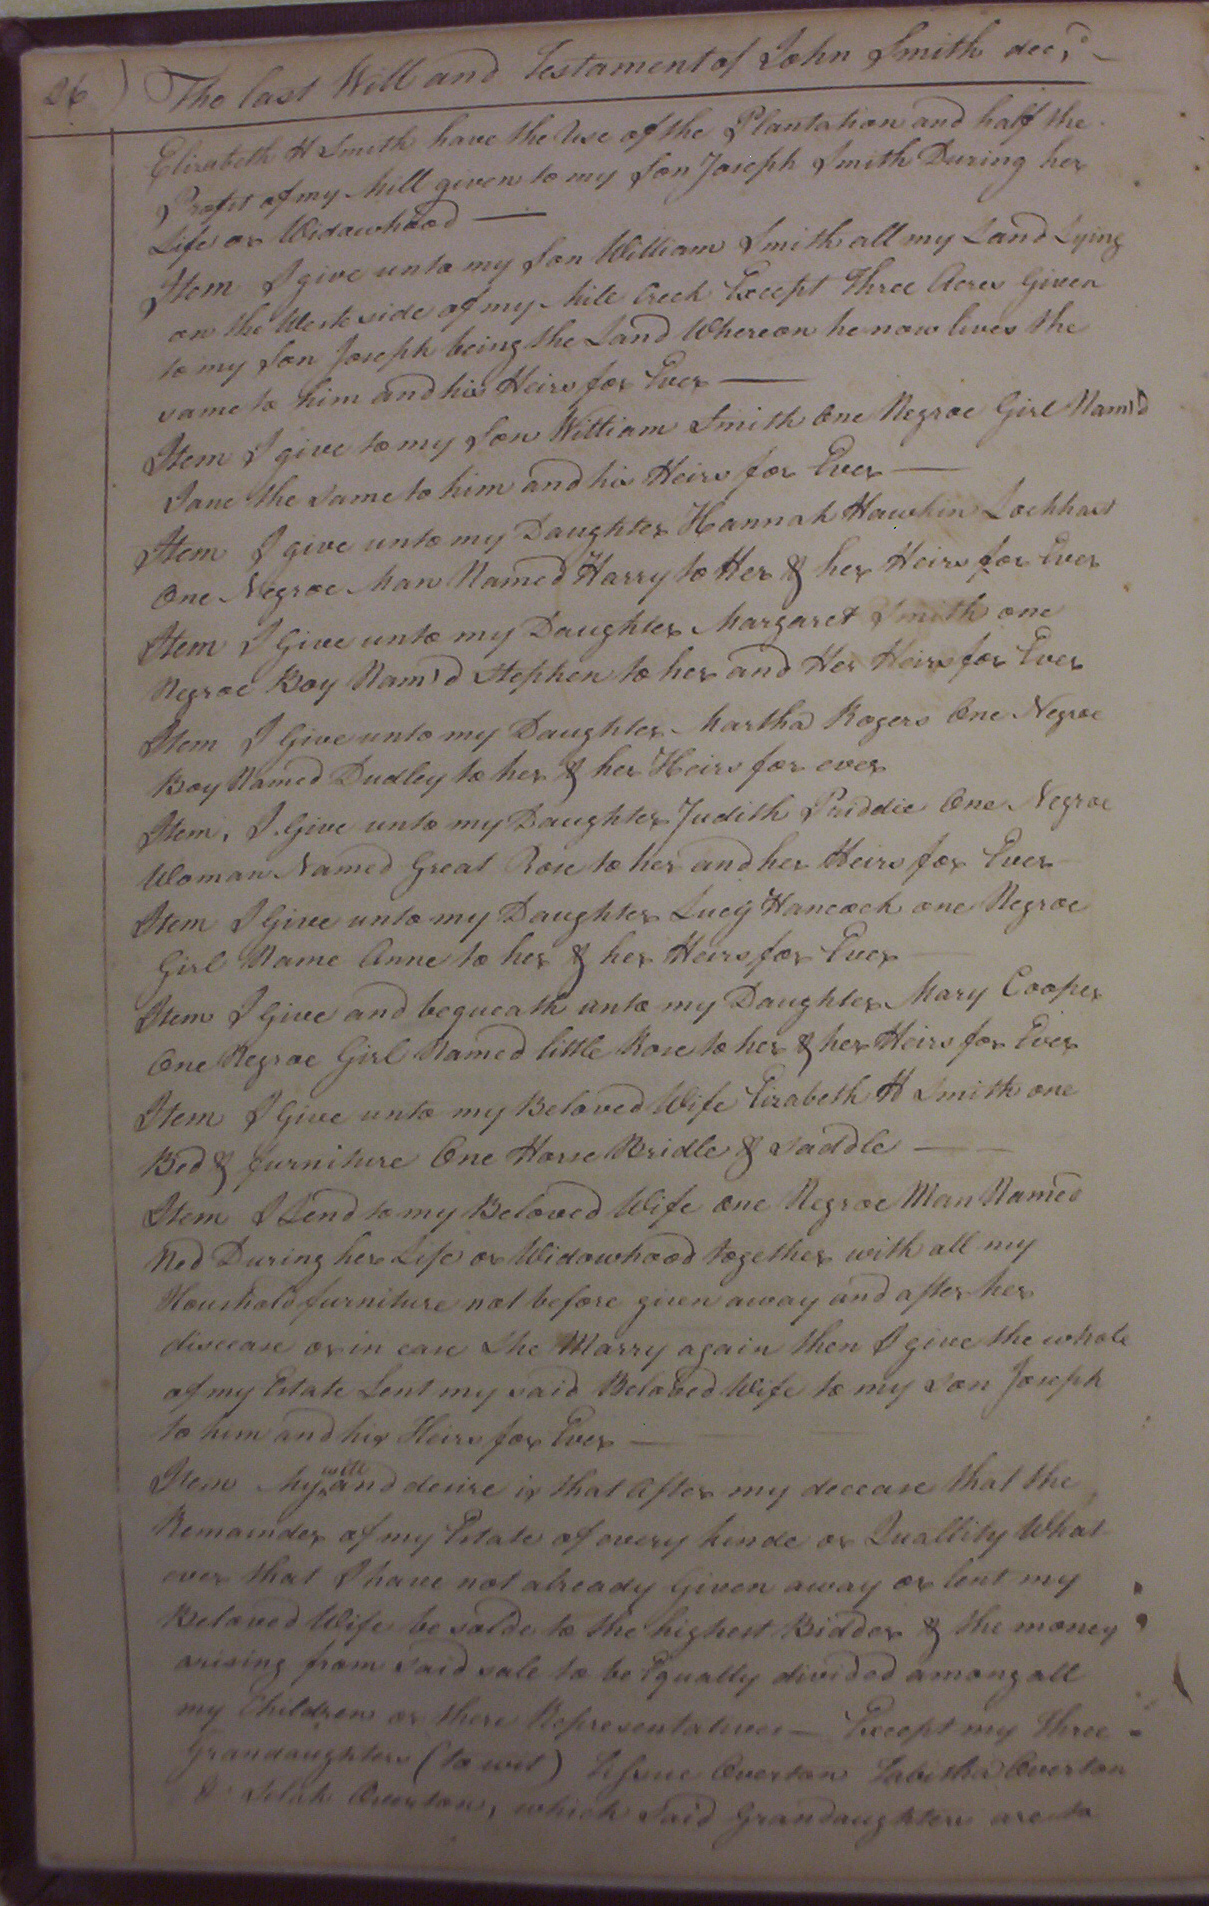 26) The last Will and Testament of John Smith dec,d
Elizabeth H Smith have the Use of the Plantation and half the
Profit of my Mill given to my Son Joseph Smith During her
Life or Widowhood —
Item I give unto my Son William Smith all my Land Lying
on the West side of my Mile Creek Except Three Acres Given
to my Son Joseph being the Land Whereon he now lives the
same to him and his Heirs for Ever —
Item I give to my Son William Smith One Negroe Girl Nam'd
Jane the same to him and his Heirs for Ever —
Item I give unto my Daughter Hannah Hawkin Lockhart
One Negroe Man Named Harry to Her & her Heirs for Ever
Item I Give unto my Daughter Margaret Smith one
Negroe Boy Nam'd Stephen to her and Her Heirs for Ever
Item I Give unto my Daughter Martha Rogers One Negroe
Boy Named Dudley to her & her Heirs for ever
Item, I Give unto my Daughter Judith Priddie One Negroe
Woman Named Great Rose to her and her Heirs for Ever
Item I Give unto my Daughter Lucy Hancock one Negroe
Girl Name Anne to her & her Heirs for Ever —
Item I Give and bequeath unto my Daughter Mary Cooper
One Negroe Girl Named little Rose to her & her Heirs for Ever
Item I Give unto my Beloved Wife Eizabeth H Smith one
Bed & furniture One Horse Bridle & saddle —
Item I Lend to my Beloved Wife one Negroe Man Named
Ned During her Life or Widowhood together with all my
Houshold furniture not before given away and after her
discease or in case she Marry again then I give the whole
of my Estate Lent my said Beloved Wife to my Son Joseph
to him and his Heirs for Ever —
Item My will and desire is that After my decease that the
Remainder of my Estate of every kinde or Quallity What
ever that I have not already Given away or lent my
Beloved Wife be solde to the highest Bidder & the money
arising from said sale to be Equally divided among all
my Children or there Representatives — Except my three
Grandaughters (to wit) Overton Tabitha Overton
& Overton, which said Grandaughters are to